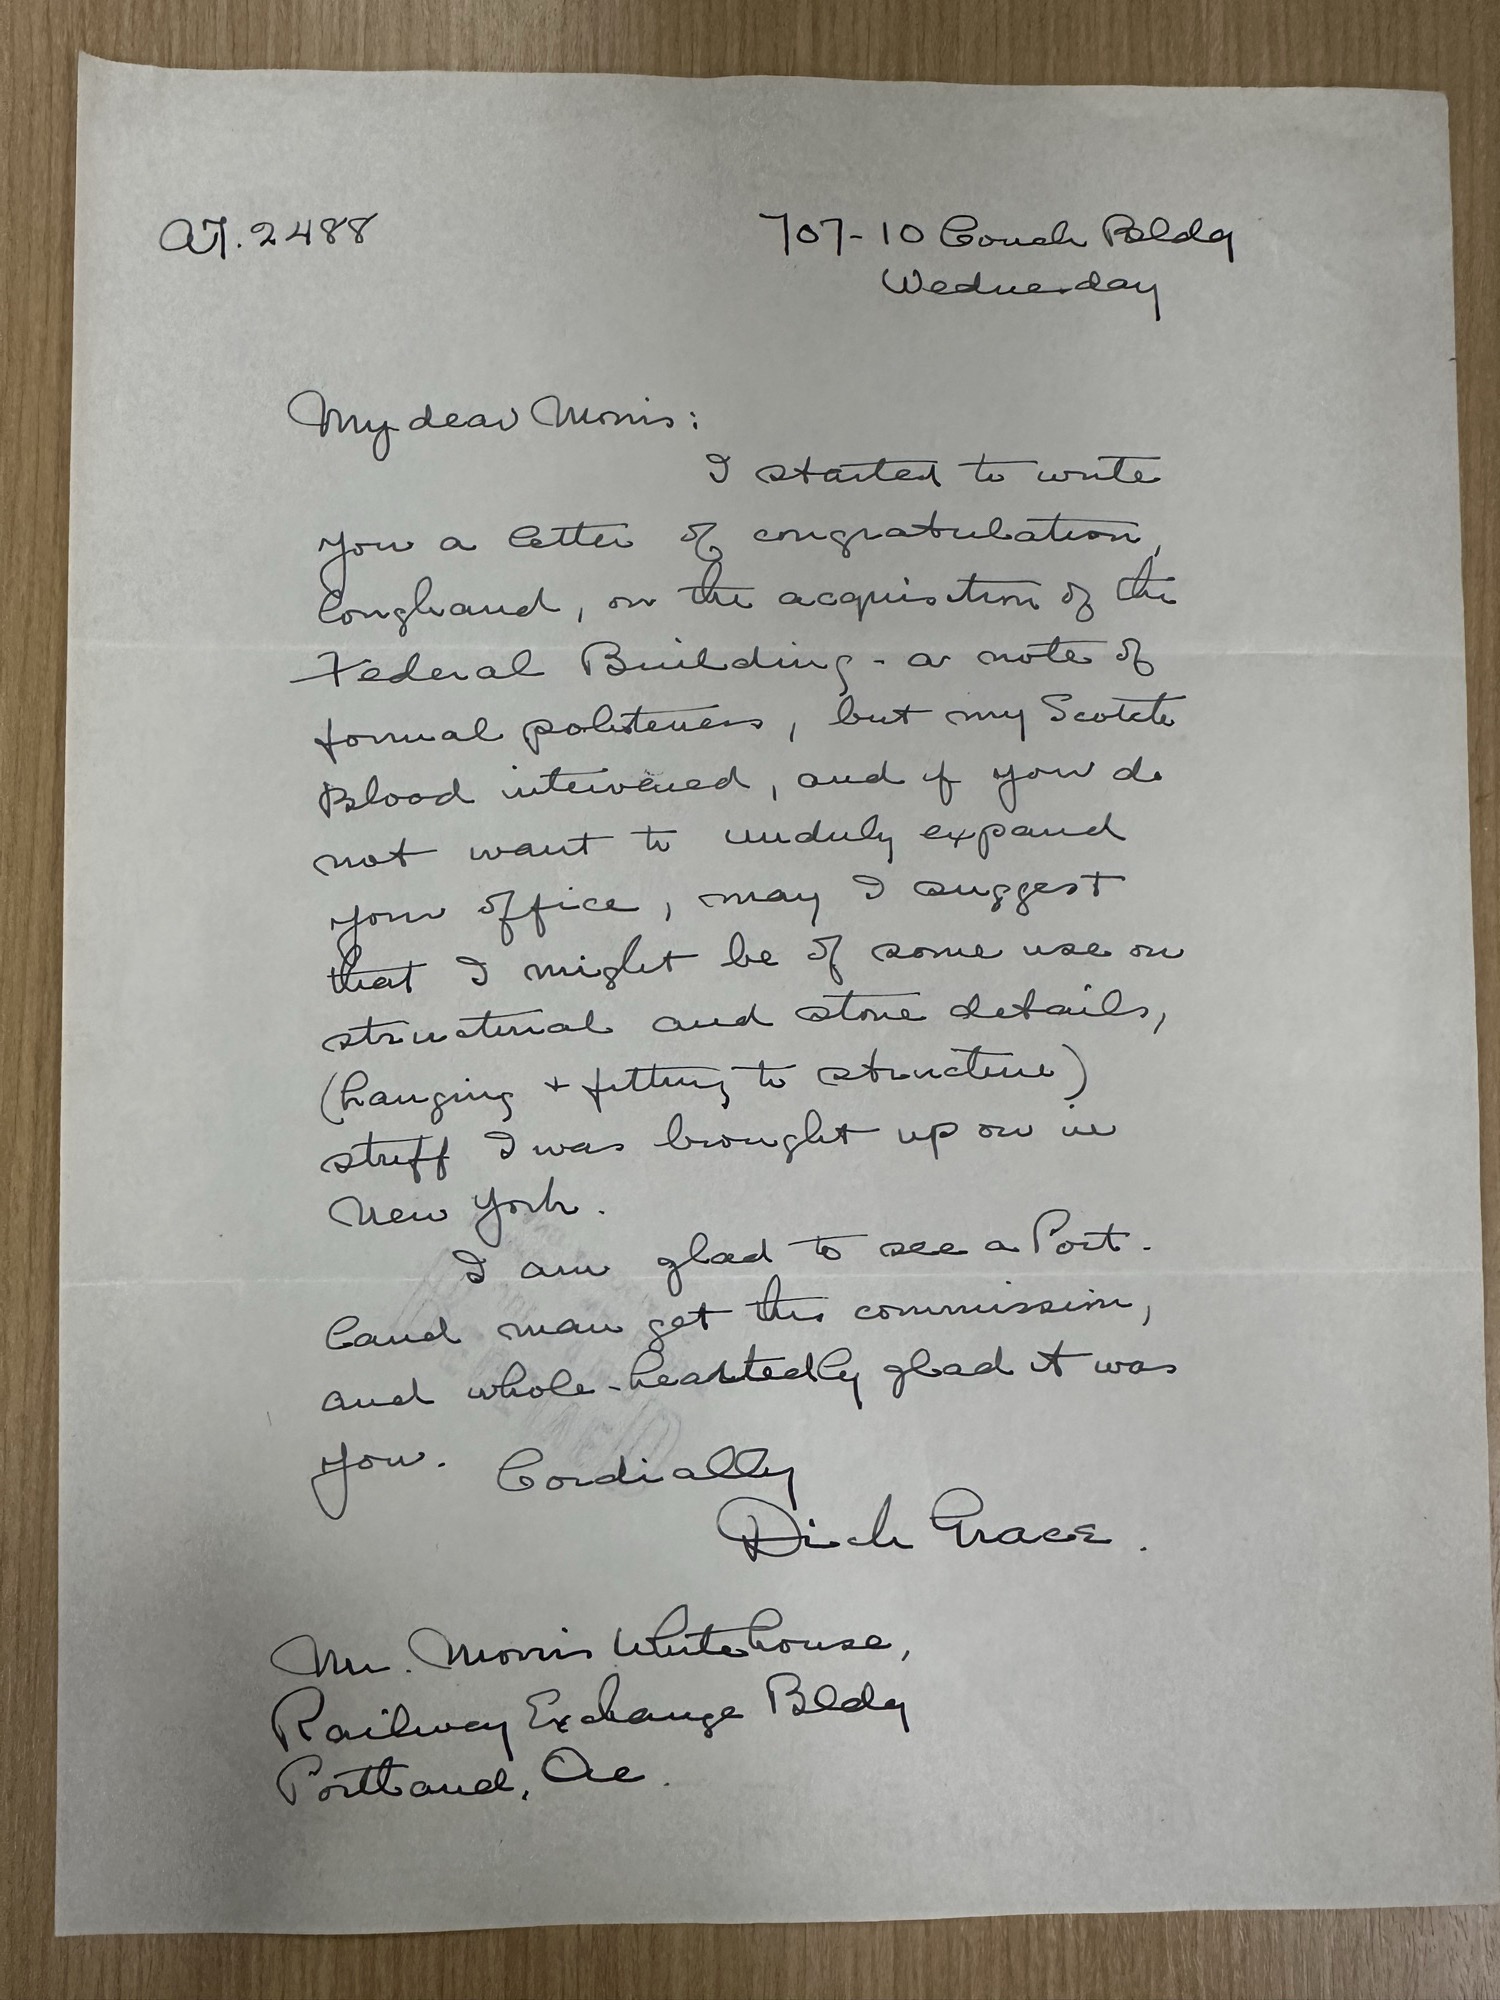 AT. 2488
707-10 Couch Bldg
Wednesday
My dear Morris:
I started to write
you a letter of congratulation,
longhand, on the acquisition of the
Federal Building - a note of
formal politeness, but my Scotch
Blood intervened, and if you do
not want to unduly expand
your office, may I suggest
that I might be of some use on
structural and stone details,
(hanging + fitting to structure)
stuff I was brought up on in
New York.
I am glad to see a Port-
land man get this commission,
and whole-heartedly glad it was
you.
Cordially
Dick Grace.
Mr. Morris Whitehouse,
Railway Exchange Bldg
Portland, Ore.